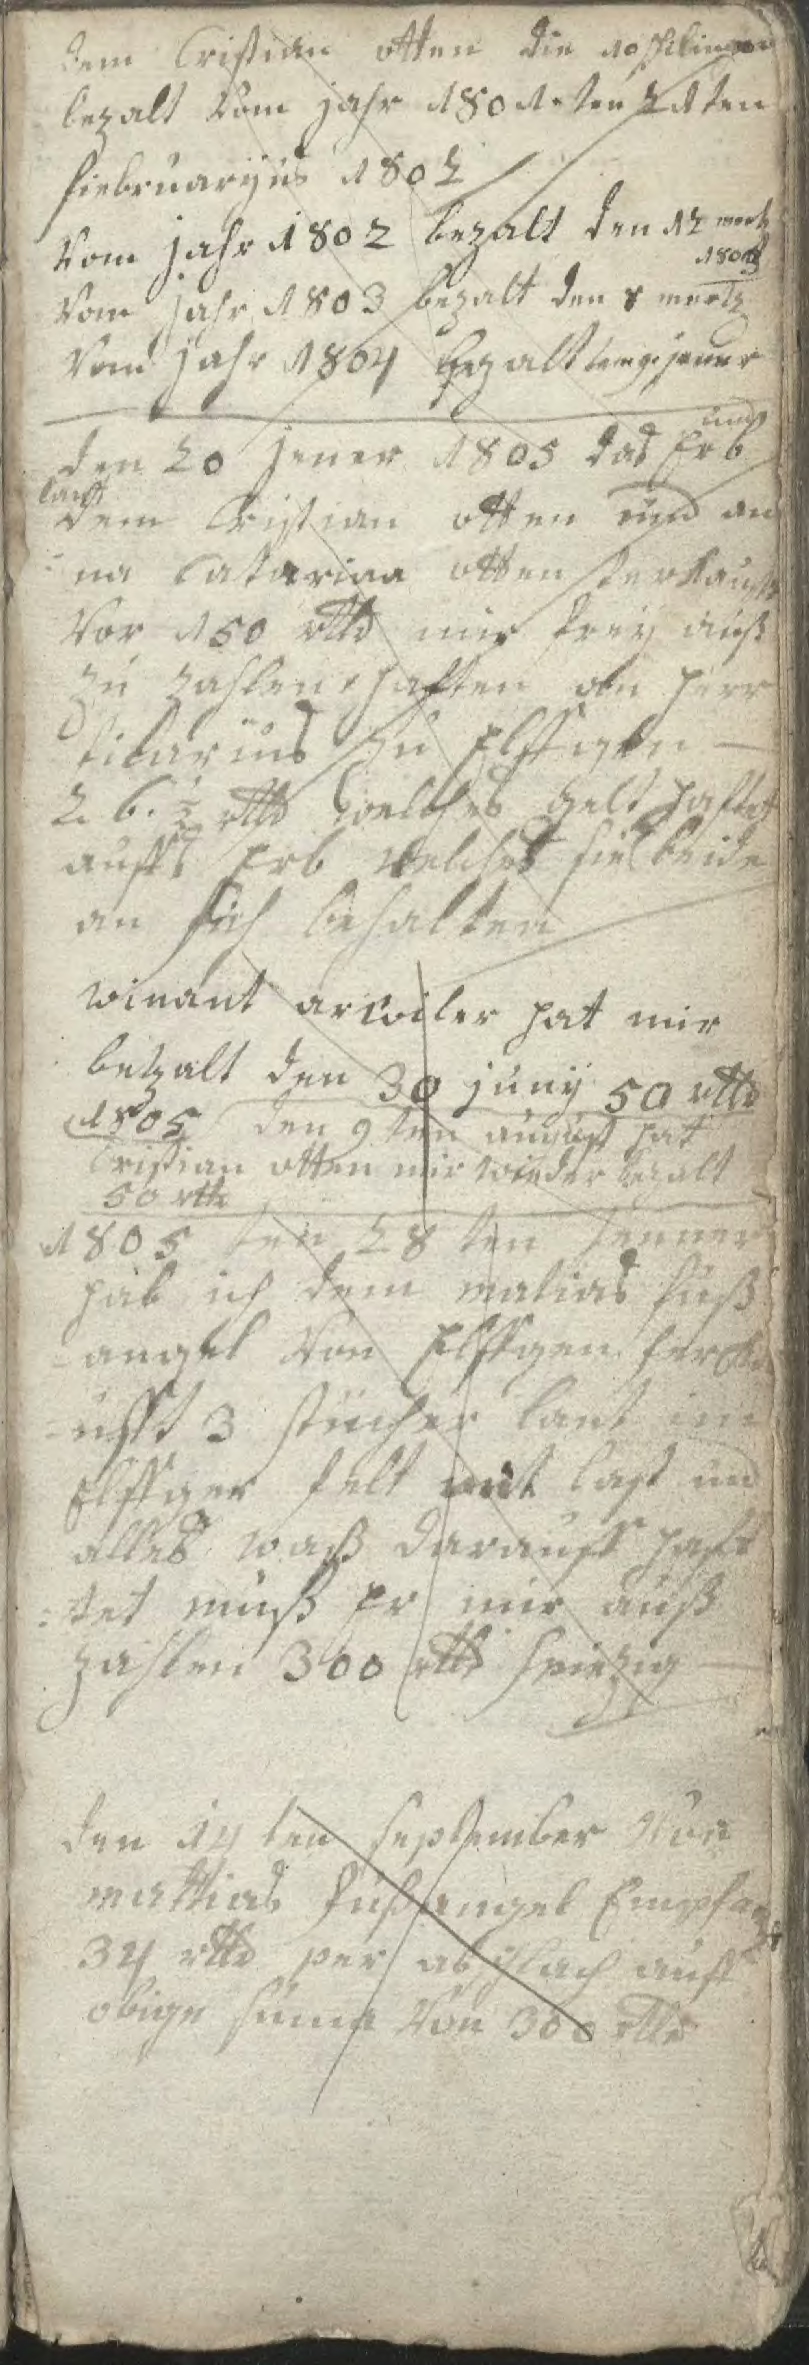 dem Cristian otten die 10 schilinger
bezalt Vom jahr 1801 ten 21ten
fiebruaryus 1802
Vom jahr 1802 bezalt den 12 mertz
1803
Vom jahr 1803 bezalt den 8 mertz
Vom jahr 1804 bezalt jener
den 20 jener 1805 das Erb
dem Cristian otten und an
na Catarina otten verkaufft
Vor 150 rtlr mir frey auß
zu zahlen hafften an herr
vicarius zu Elffgen
26 ½ rtlr welches gelt hafftet
auffs Erb welches sie beide
an sich behalten
winant arwiler hat mir
betzalt den 30 juny 50 rtlr
1805 den 9ten august hat
Cristian otten mir wieder bezalt
50 rtlr
1805 ten 28ten jenner
hab ich dem matias fuß
angel Von Elffgen verka
ufft 3 stücher lant im
Elffger felt mit last und
alles waß darauff haff
tet muß Er mir auß
zahlen 300 rtlr
den 14ten september Von
mattias fußangel Empfang
34 rtlr per abschlach auff
obige suma Von 300 rtlr